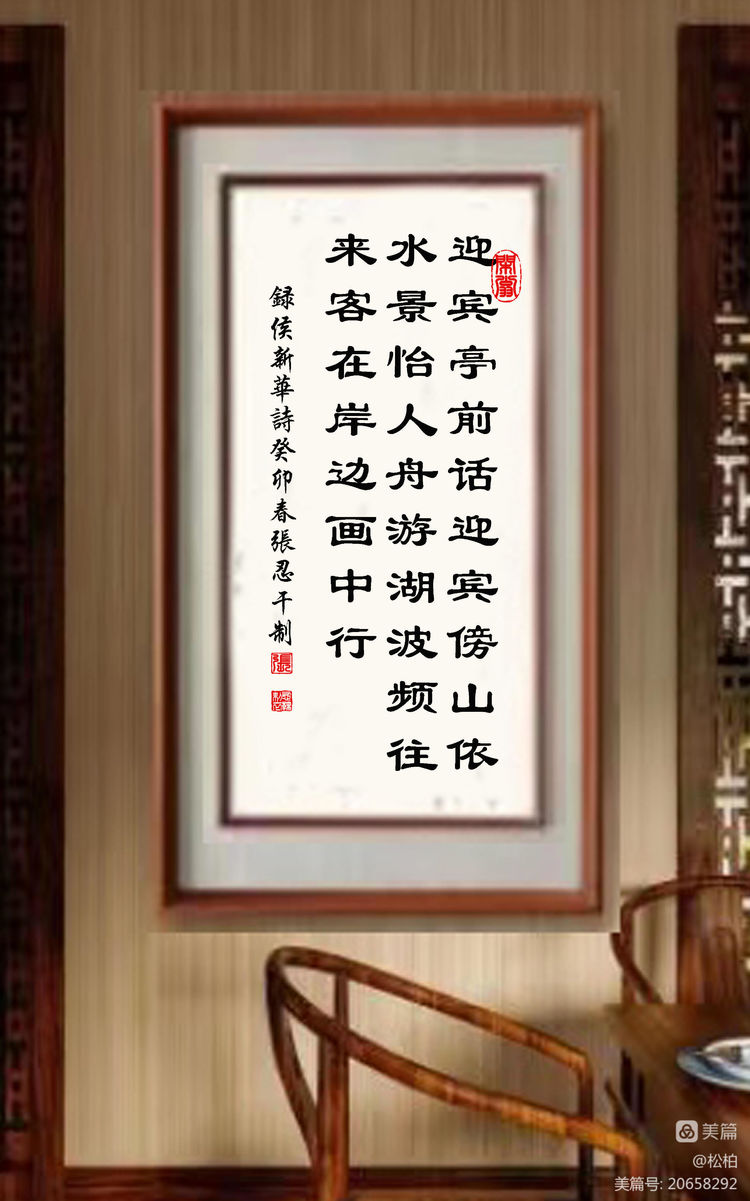 迎宾亭前话迎宾傍山依
水景怡人舟游湖波频往
来客在岸边画中行
録侯新華詩癸卯春張忍干制
張
美篇
@松柏
美篇号: 20658292